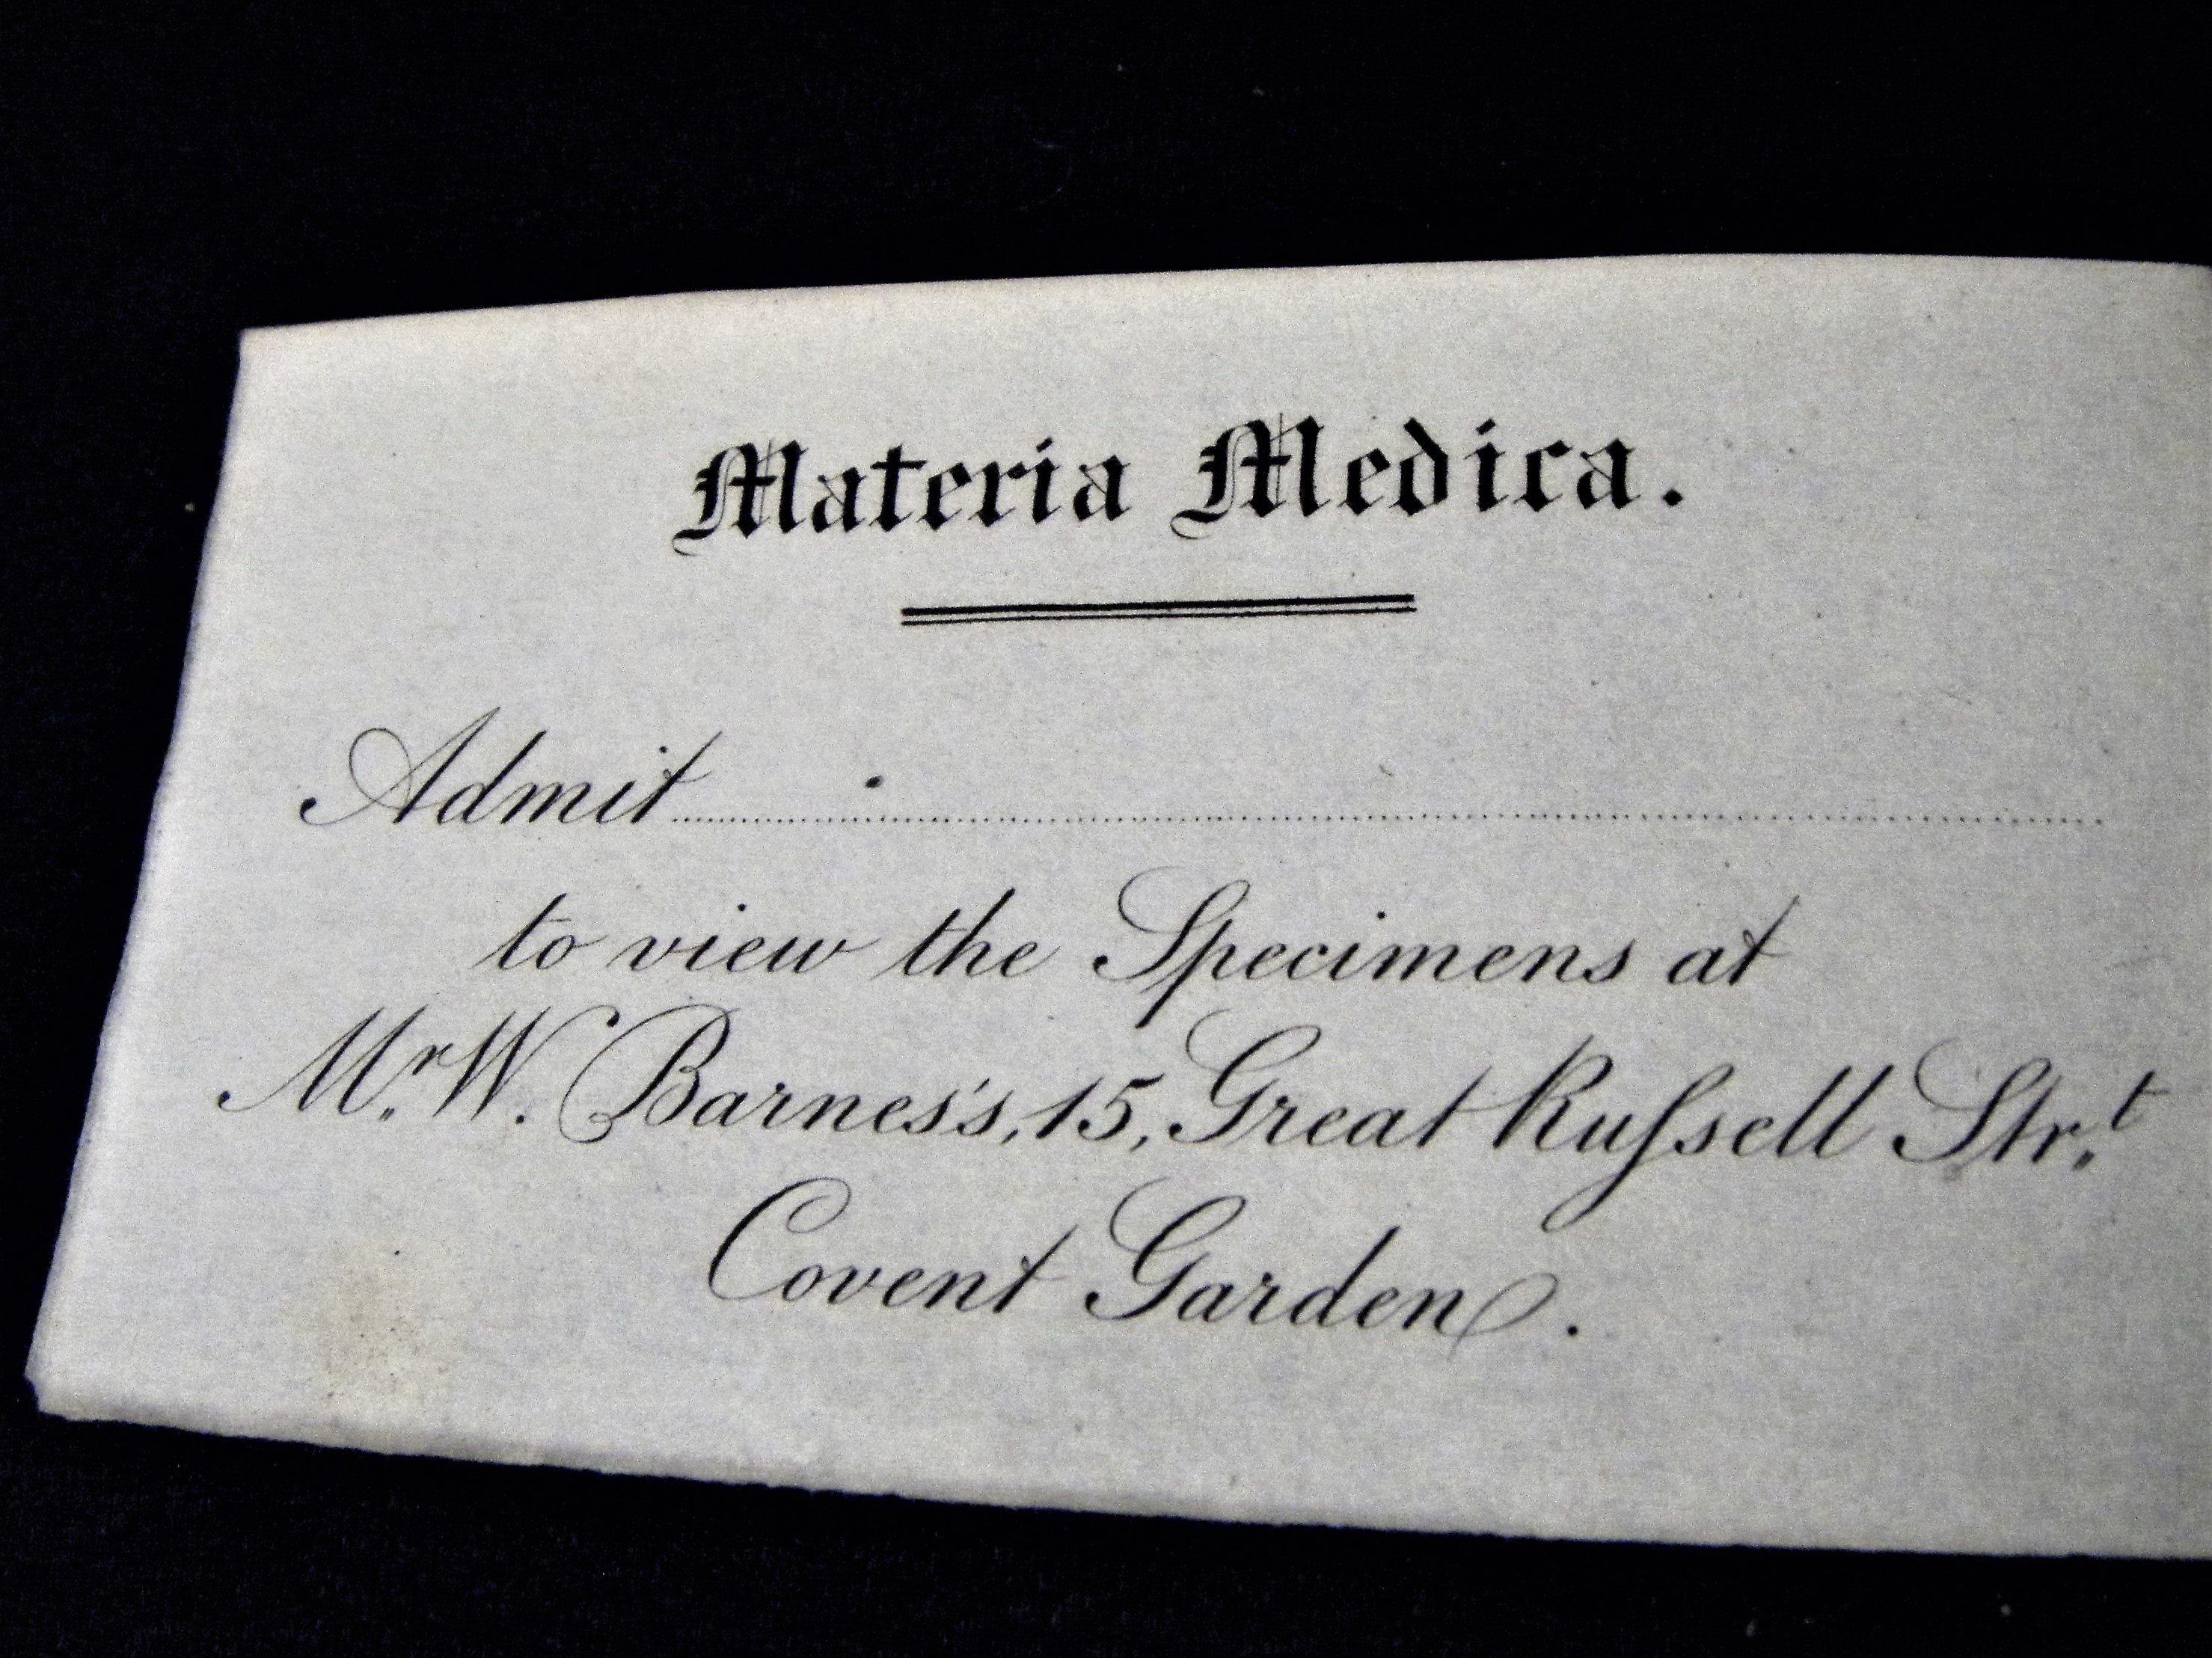 Materia Medica.
Admit
to view the Specimens at
Mr. W. Barnes's, 15, Great Ruſsell Str.t
Covent Garden.